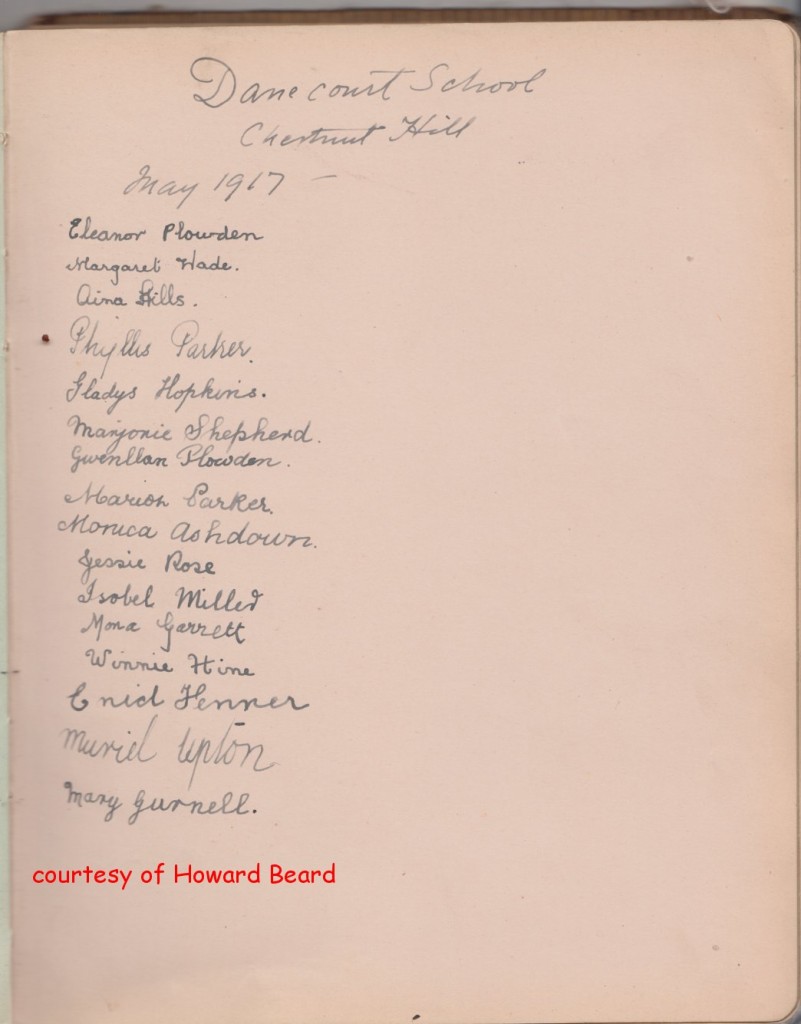 Danecourt School
Chestnut Hill
May 1917 –
Eleanor Plowden
Margaret Wade.
Aina Hills.
Phyllis Parker.
Gladys Hopkins.
Marjorie Shepherd.
Gwenllan Plowden.
Marion Parker.
Monica Ashdown.
Jessie Rose
Isobel Miller
Mona Garrett
Winnie Hine
Enid Fenner
Muriel Upton
Mary Gurnell.
courtesy of Howard Beard